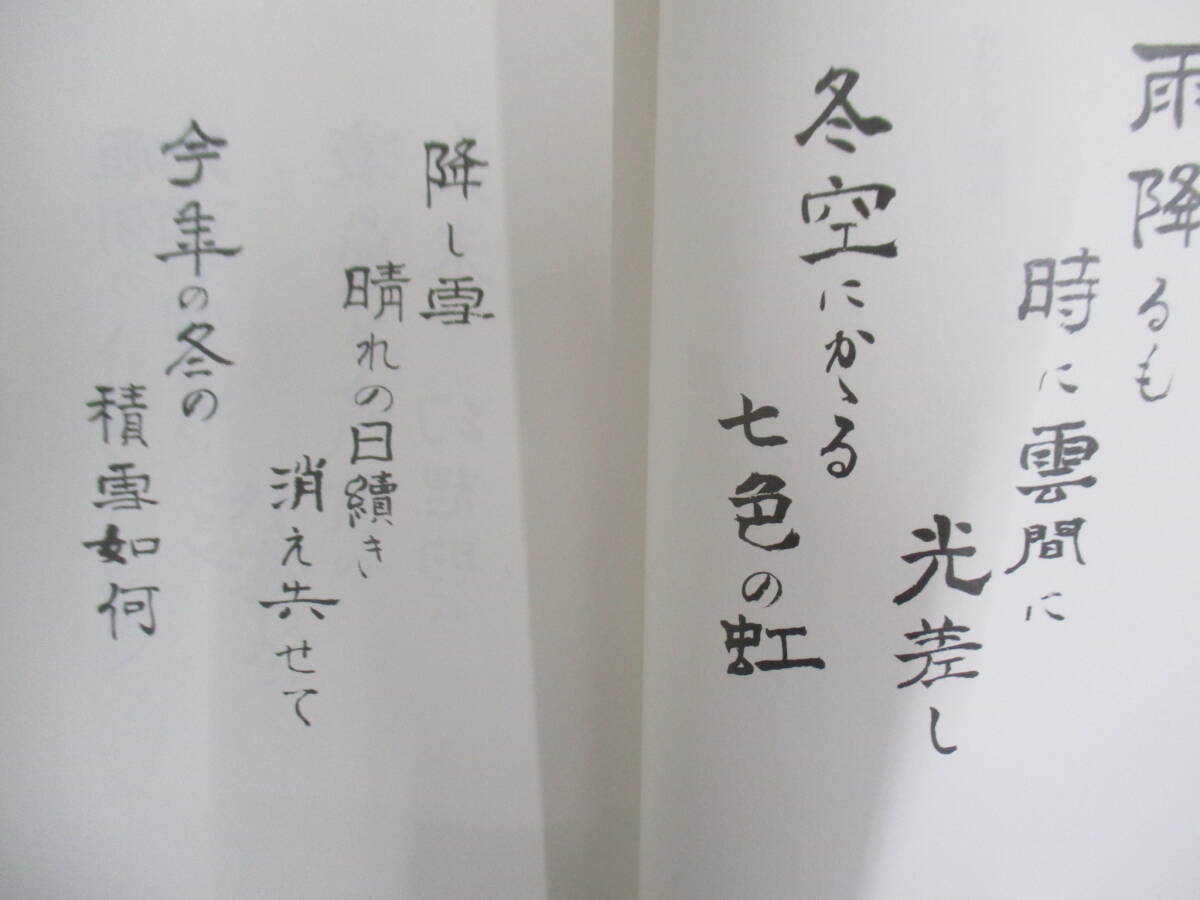 雨降るも
時に雲間に
光差し
冬空にかゝる
七色の虹
降し雪
晴れの日續き
消え失せて
今年の冬の
積雪如何